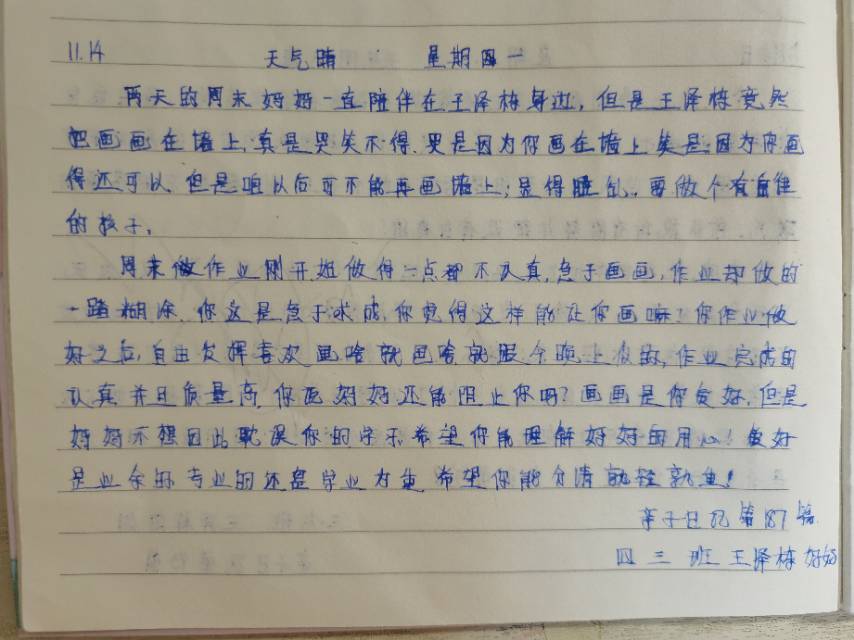 11.14 天气晴 星期一
两天的周末妈妈一直陪伴在王泽栋身边,但是王泽栋竟然
把画画在墙上,真是哭笑不得.哭是因为你画在墙上笑是因为你画
得还可以,但是咱以后可不能再画墙上;显得脏乱。要做个有自律
的孩子.
周末做作业刚开始做得一点都不认真,急于画画,作业却做的
一踏糊涂.你这是急于求成,你觉得这样能让你画嘛!你作业做
好之后,自由发挥喜欢画啥就画啥就跟今晚上似的,作业完成的
认真并且质量高,你说妈妈还能阻止你吗?画画是你爱好,但是
妈妈不想因此耽误你的学习希望你能理解妈妈的用心!爱好
是业余的专业的还是学业为先希望你能分清孰轻孰重!
亲子日记第187篇
四三班王泽栋妈妈